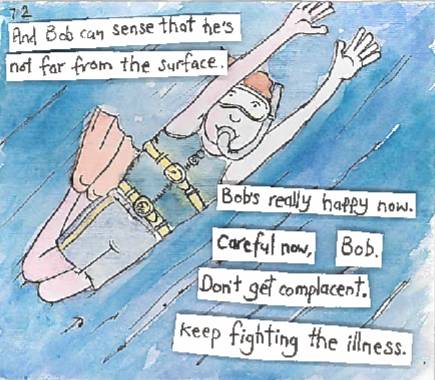 72
And Bob can sense that he's
not far from the surface.
Bob's really happy now.
Careful now, Bob.
Don't get complacent.
Keep fighting the illness.